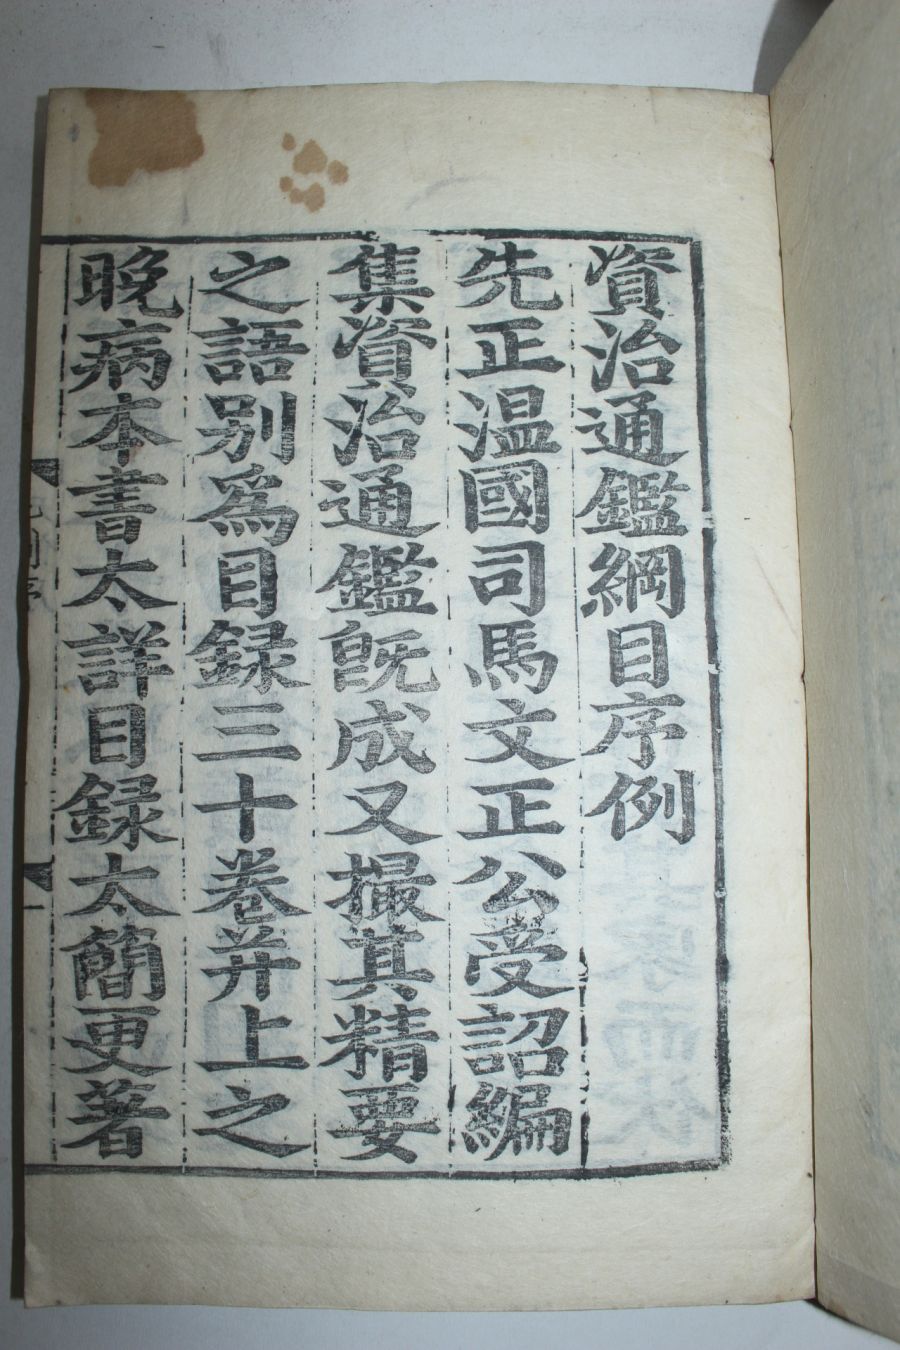 資治通鑑綱目序例
先正温國司馬文正公受詔編
集資治通鑑旣成又撮其精要
之語別爲目録三十卷并上之
晚病本書太詳目録太簡更著